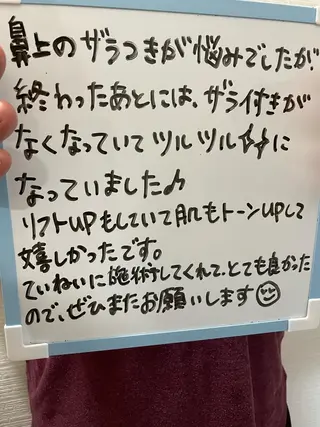 鼻上のザラつきが悩みでしたが、
終わったあとには、ザラ付きが
なくなっていてツルツル⚡⚡に
なっていました♪
リフトUPもしていて肌もトーンUPして
嬉しかったです。
ていねいに施術してくれて、とても良かった
ので、ぜひまたお願いします☺